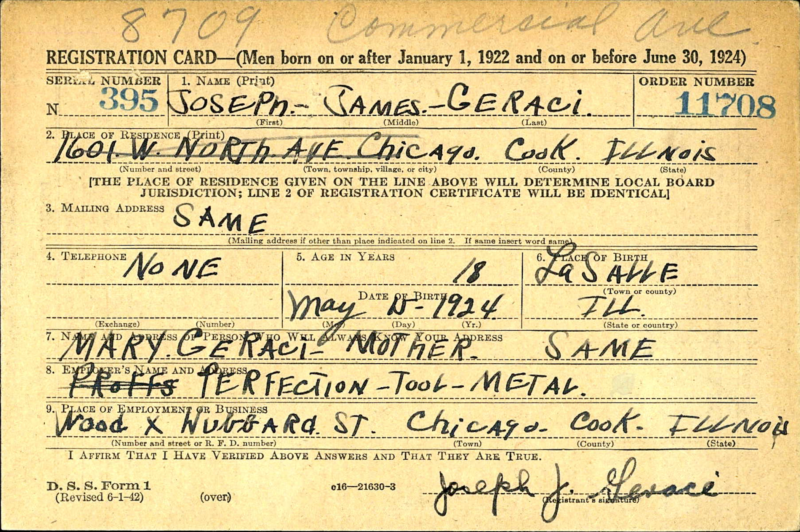 8709 Commercial Ave
REGISTRATION CARD—(Men born on or after January 1, 1922 and on or before June 30, 1924)
SERIAL NUMBER 1. NAME (Print) ORDER NUMBER
N 395 JOSEPH - JAMES - GERACI. 11708
(First) (Middle) (Last)
2. PLACE OF RESIDENCE (Print)
1601 W. NORTH AVE. Chicago. Cook. ILLNOIS
(Number and street) (Town, township, village, or city) (County) (State)
[THE PLACE OF RESIDENCE GIVEN ON THE LINE ABOVE WILL DETERMINE LOCAL BOARD
JURISDICTION; LINE 2 OF REGISTRATION CERTIFICATE WILL BE IDENTICAL]
3. MAILING ADDRESS
SAME
(Mailing address if other than place indicated on line 2. If same insert word same)
4. TELEPHONE 5. AGE IN YEARS 6. PLACE OF BIRTH
NONE 18 LaSALLE
(Town or county)
DATE OF BIRTH
May 1924 ILL.
(Exchange) (Number) (Mo.) (Day) (Yr.) (State or country)
7. NAME AND ADDRESS OF PERSON WHO WILL ALWAYS KNOW YOUR ADDRESS
MARY. GERACI - MOTHER. SAME
8. EMPLOYER'S NAME AND ADDRESS
PERFECTION - TOOL - METAL.
9. PLACE OF EMPLOYMENT OR BUSINESS
Wood X HUBBARD. ST. Chicago - Cook - ILLNOIS
(Number and street or R. F. D. number) (Town) (County) (State)
I AFFIRM THAT I HAVE VERIFIED ABOVE ANSWERS AND THAT THEY ARE TRUE.
D. S. S. Form 1
(Revised 6-1-42) (over) c16—21630-3 Joseph J. Geraci
(Registrant's signature)